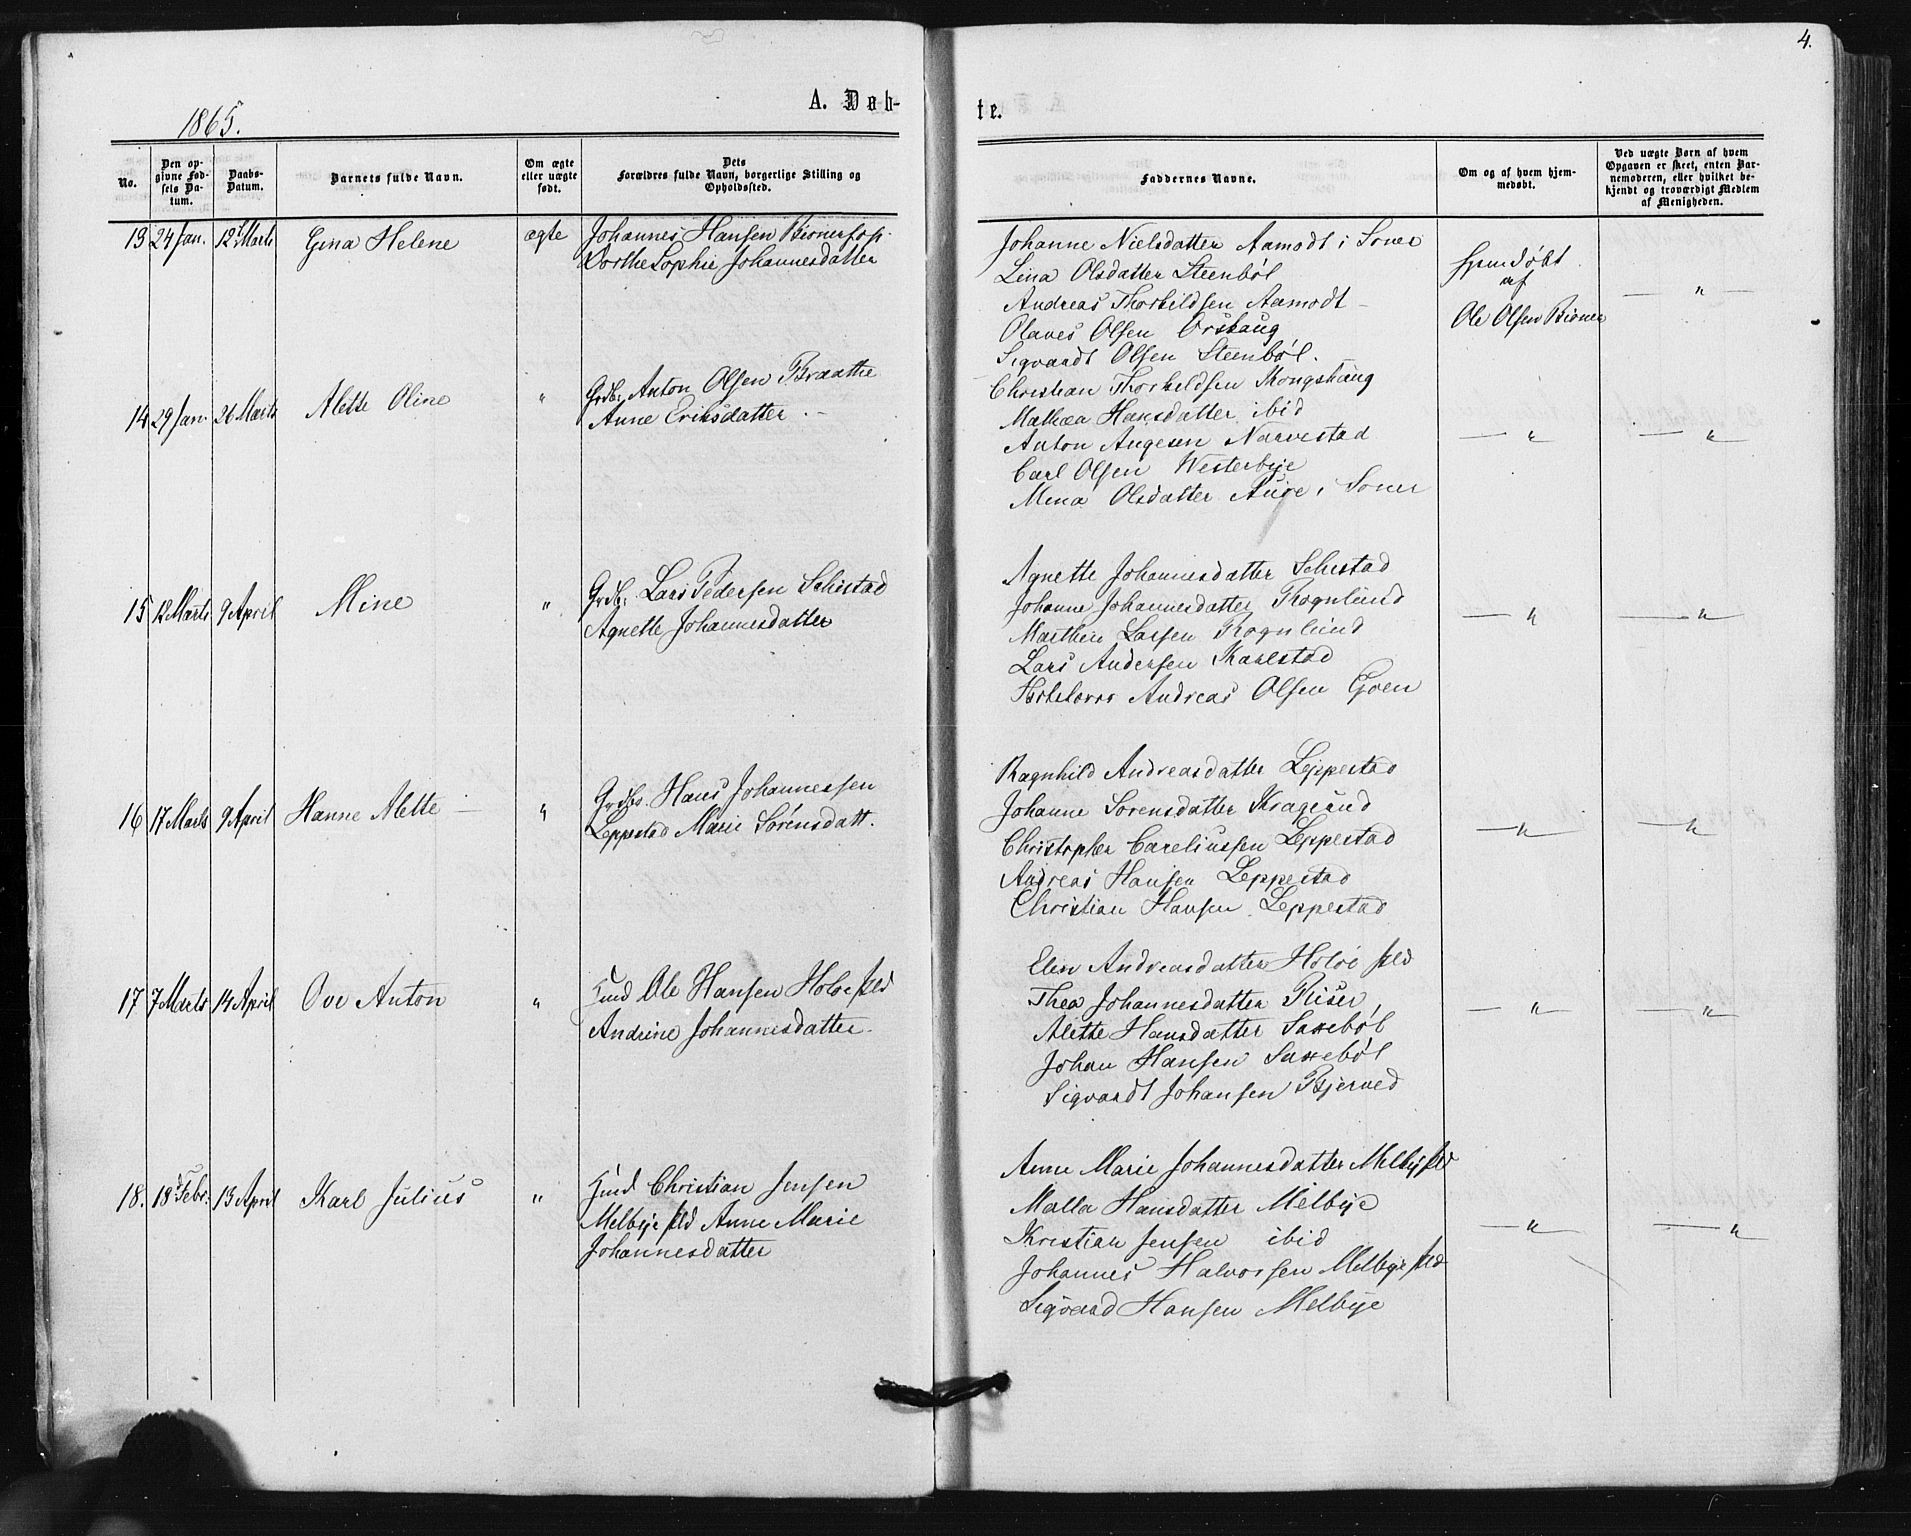 4.
1865.
A. Døb-
te.
No.
Den op-
givne Fød-
sels Da-
tum.
Daabs-
Datum.
Barnets fulde Navn.
Om ægte
eller uægte
født.
Dets
Forældres fulde Navn, borgerlige Stilling og
Opholdssted.
Faddernes Navne.
Om og af hvem hjem-
medøbt.
Ved uægte Børn af hvem
Opgaven er skeet, enten Bar-
nemoderen, eller hvilket be-
kjendt og troværdigt Medlem
af Menigheden.
13 24 Jan. 12 Marts Gina Helene ægte Johannes Hansen
Dorthe Sophie Johannesdatter
Johanne Nielsdatter Aamodt i Soner
Lina Olsdatter Steenbøl
Andreas Thorkildsen Aamodt
Olaves Olsen Orskaug
Sigvardt Olsen Steenbøl.
Hjemdøbt
af
Ole Olsen Bioner
— " —
14 29 Jan. 26 Marts Alette Oline " Grdb. Anton Olsen Braathe
Anne Eriksdatter
Christian Thorkeldsen Kongshaug
Mathea Hansdatter ibid
Anton Augesen Narvestad
Carl Olsen Westerbye
Mina Olsdatter Aure i Soner
— " —
— " —
15 12 Marts 9 April Mine " Grdb. Lars Pedersen Sehestad
Agnette Johannesdatter
Agnette Johannesdatter Sehestad
Johanne Johannesdatter Rognlund
Marthin Larsen Rognlund
Lars Andersen Karlstad
Andreas Olsen Goen
— " —
— " —
16 17 Marts 9 April Hanne Alette — " Grdb. Hans Johannessen
Leppestad Marie Sørensdatt.
Ragnhild Andreasdatter Leppestad
Johanne Sorensdatter Kragerud
Christopher Careliussen Leppestad
Andreas Hansen Leppestad
Christian Hansen Leppestad
— " —
— " —
17 7 Marts 14 April Ove Anton " Hmd Ole Hansen Holøe fld
Andrine Johannesdatter.
Elen Andreasdatter Holøe fld
Thea Johannesdatter Riser
Alette Hansdatter Saxebøl
Johan Hansen Saxebøl
Sigvardt Johansen Bjerned
— " —
— " —
18. 18 Febr. 13 April Karl Julius " Hmd. Christian Jensen
Melbye fld Anne Marie
Johannesdatter
Anne Marie Johannesdatter Melbye fld
Malla Hansdatter Melbye
Kristian Jensen ibid
Johannes Halvorsen Melbye fld
Sigvard Hansen Melbye
— " —
— " —